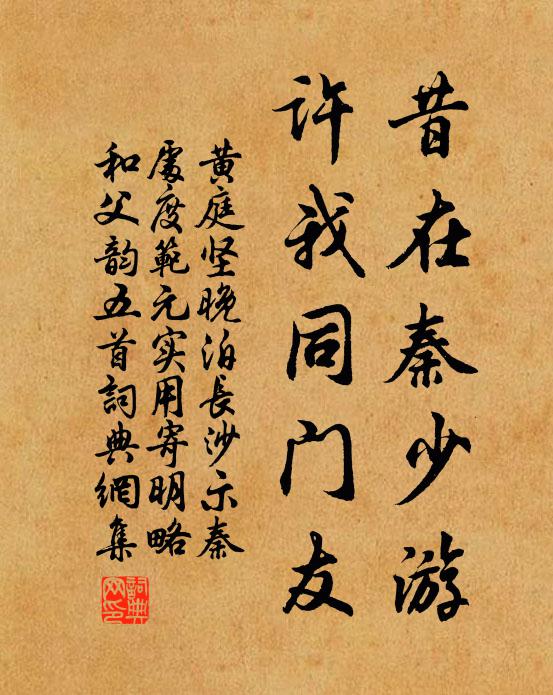 昔在秦少游
许我同门友
黄庭坚晚泊長沙示秦
處度範元实用寄明略
和父韵五首詞典網集
詞典
网印